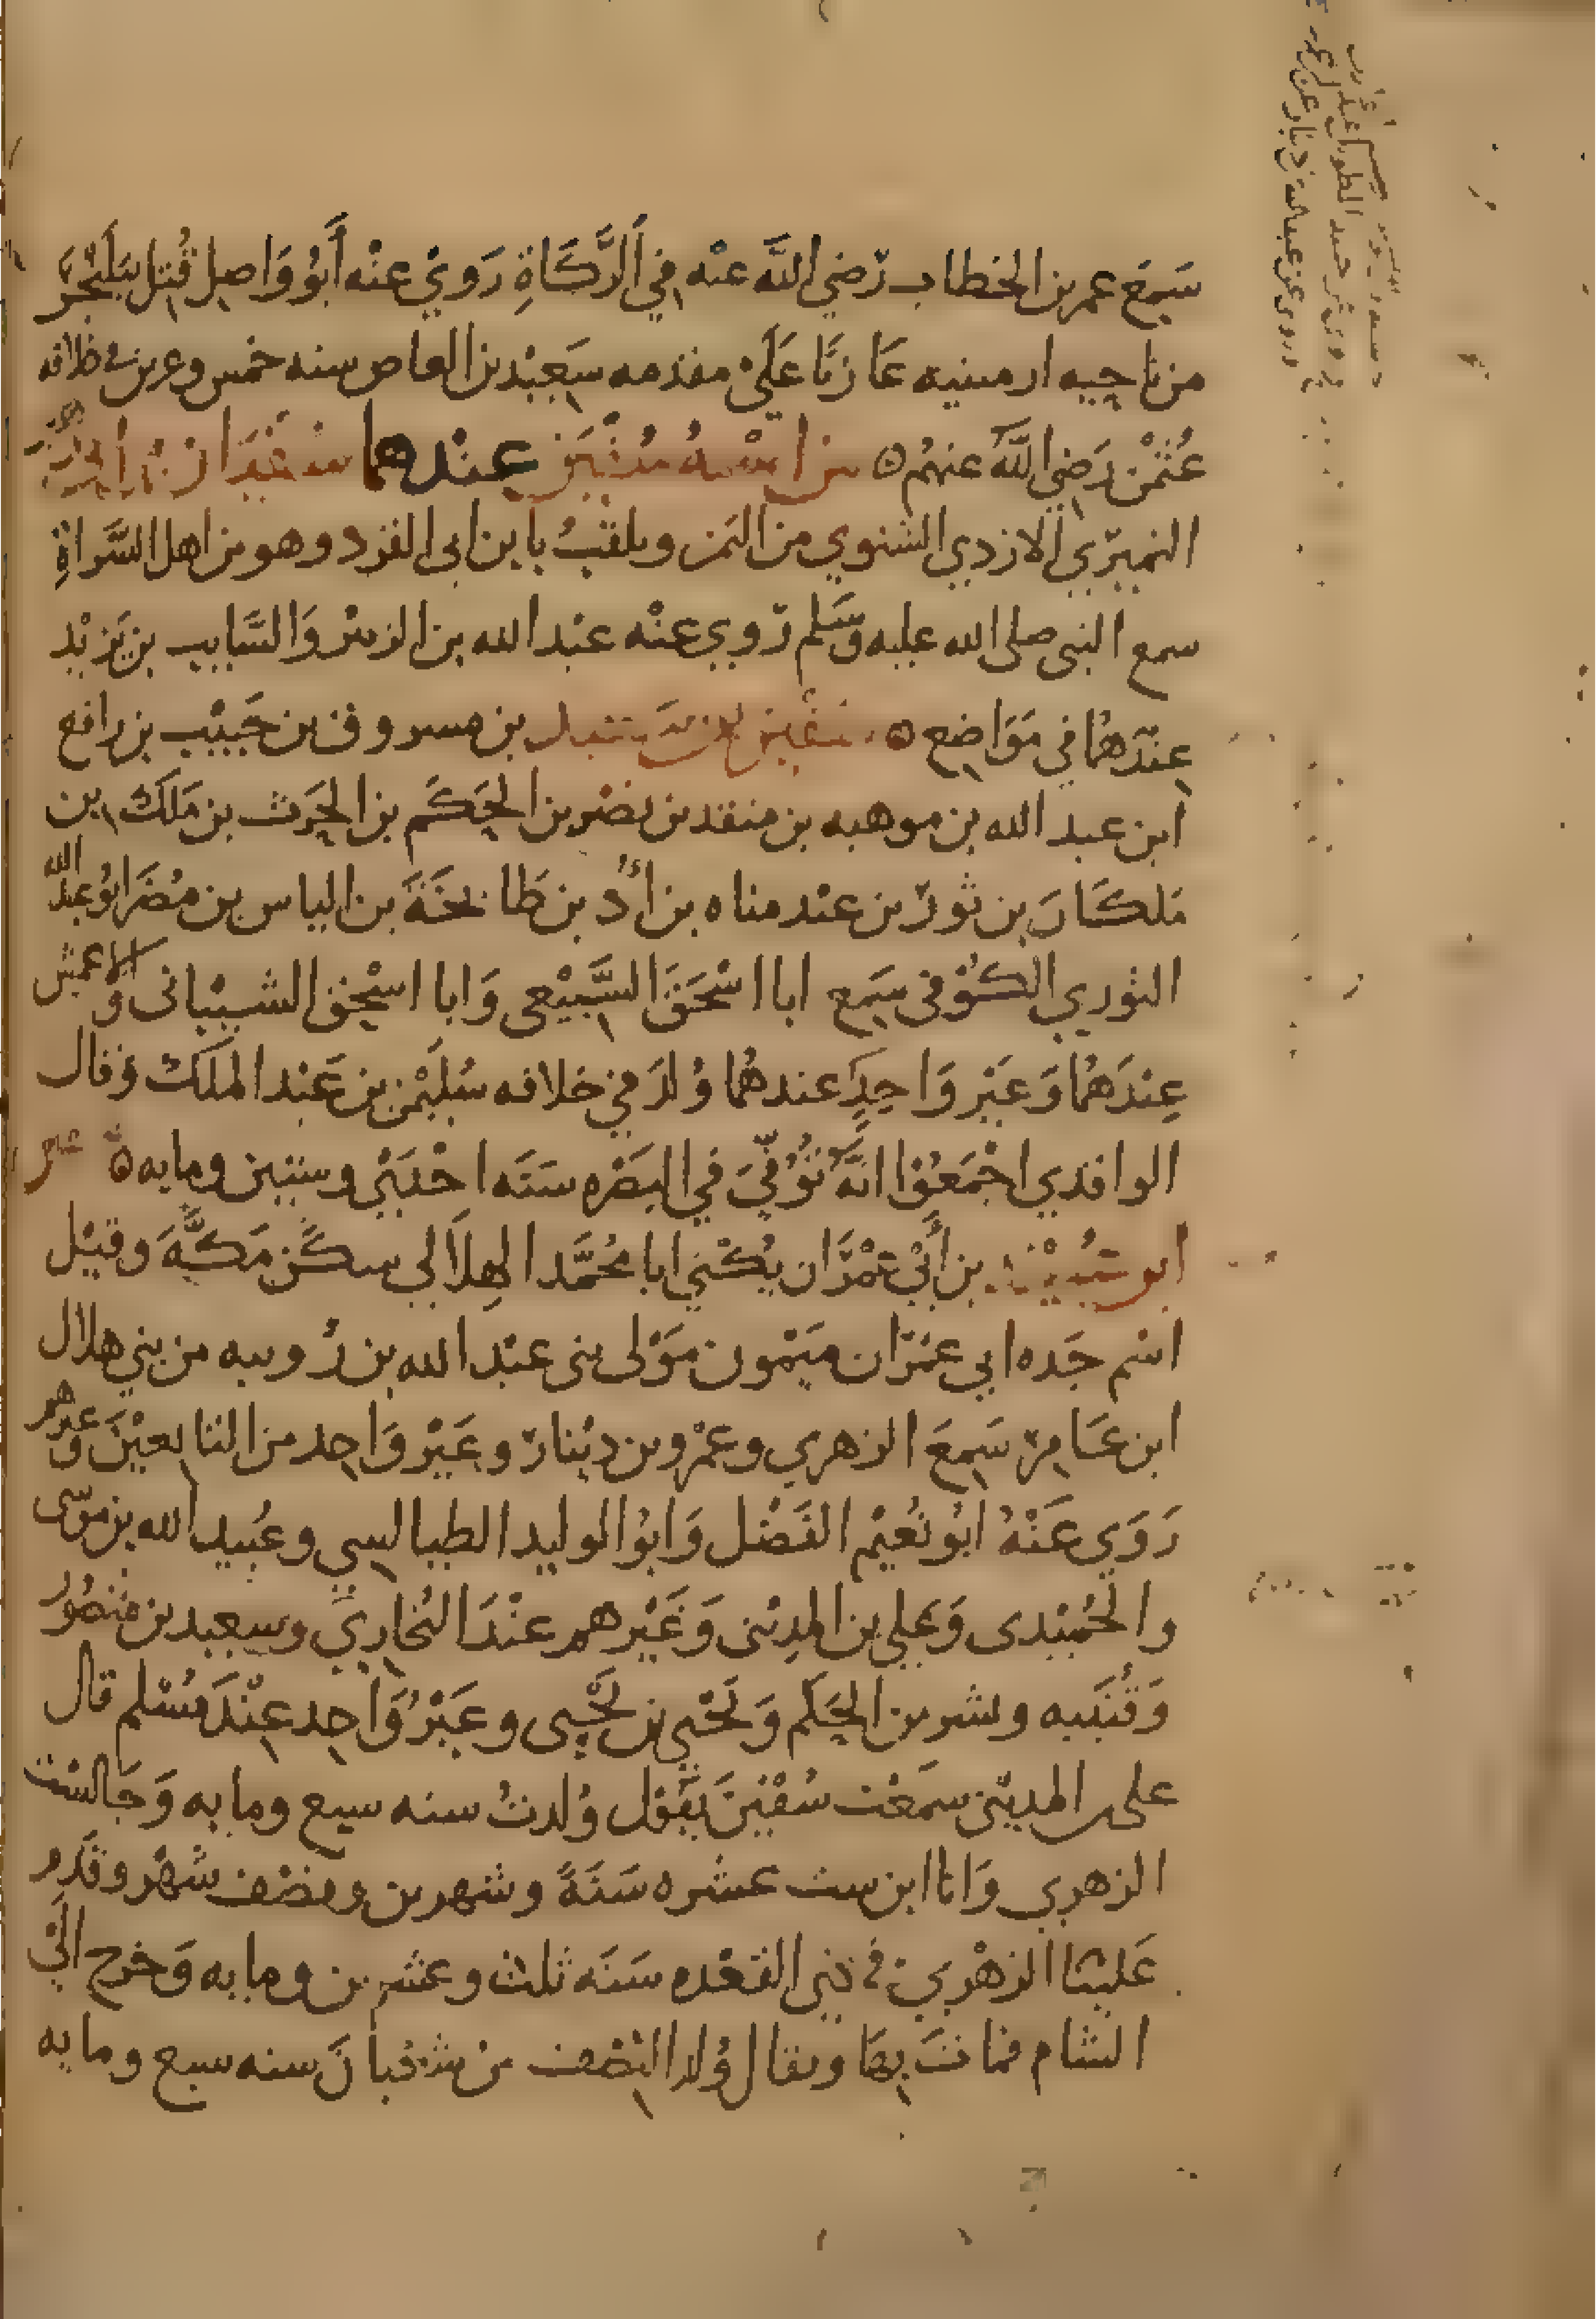 سَمِعَ عمر بن الخطاب رّضي اللَّه عنْه في الزَّكَاةِ رَويْ عنْه أَبُو وَاصِل قُتِل بَبلَنْجَرَ
من ناحِيه ارمينيه غَازيًا عَلَىْ مقدمه سَعِيْد بن العاص سنه خمس وعرين في خلافه
عُثمْن رَضِي اللَّه عنهُم ۝ من اسْمهُ سُفْيَن عِنْدهما سفْيَان بْن أبي زهير
النميرّي الازدي الشنوي من اليَمَن ويلقبُ بابن ابي القرد وهو من اهل السَّراةِ
سمع النبي صلى الله عليه وَسَلم رّوي عنْه عبْد الله بن الزبيْر وَالسَّايب بن يَزيْد
عِنْدَهُما في مَوَاضِع ۝ سفْين بن سَعِيد بن مسروق بن حَبيْب بن رافع
ابن عبد الله بن موهبه بن منقد بن نصْر بن الحَكَم بن الحَرِث بن مَلَك بن
مَلكَان بن ثورّ بن عبْد مناه بن أدّ بن طَابخَةَ بن الياس بن مُضَر ابُو عبد الله
الثوري الكوْفي سَمِع ابا اسْحَقَ السَّبيْعي وَابا اسْحق الشيْباني وَالاعمش
عِنْدَهُما وَغيْر وَاحِدٍ عندهُما وُلدَ في خلافه سُليْمن بن عَبْد الملَك وَقال
الواقدي اجْمَعُوْا انَّهُ تُوُفّيَ في البَصْرِه سَنَه احْدَيْ وستين ومايه ۝
ابو عُيَيْنه بن أَبيْ عِمْرَان يُكْني ابا مُحَمَّد الهِلَالي سكَن مَكَّهَ وقيْل
اسْم جَده ابي عمْرَان ميَمْون مَوْلى بني عبْد الله بن رُويبه من بني هلال
ابن عَامِرّ سَمِعَ الزهري وعمْرو بن ديْنارّ وغَيْر وَاحِد من التابعيْنَ وَغيرهم
رَوَي عَنْهُ ابُو نُعيْم الفَضْل وَابوُ الوليد الطيالسي وعُبيد الله بن موسى
والحُميْدى وَعلي بن المدِيْنى وَغَيْرهم عنْدَ البُخاريّ وسعيد بن منصُور
وَقُتَيبه وبشر بن الحَكَم وَيَحْيي بن يَحْيى وغيْرُ وَاحِد عِنْدَ مُسْلم قال
على المدينّي سَمعْت سُفْيْنَ يقُوْل وُلدتُ سنه سبع ومايه وَجَالسْت
الزهري وَانا ابن ست عشره سَنَةً وشهرين ونصْف شهْر وقَدِم
عَليْنا الزهْري في ذي القعْده سَنَه ثلث وعشرين ومايه وَخرج الَيْ
الشام فماتَ بِهَا ويقال وُلد النِصْف من شعْبانَ سنه سبع ومايه